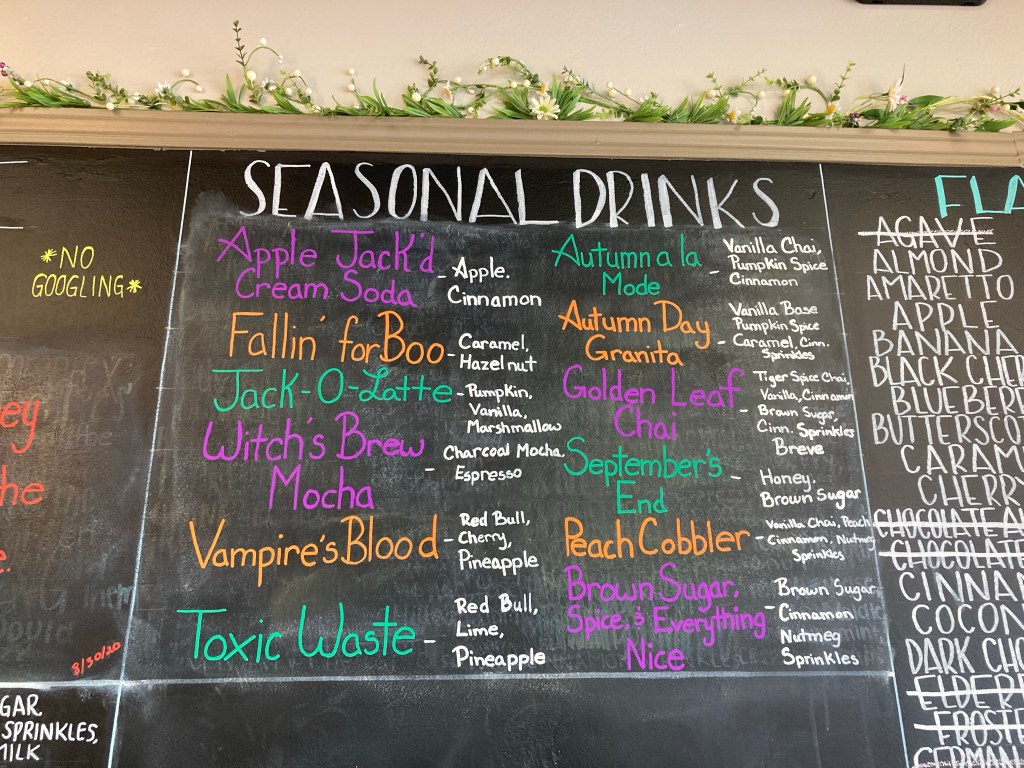 *NO
GOOGLING*
ey
he
e.
8/30/20
GAR
SPRINKLES,
MILK
SEASONAL DRINKS
Apple Jack'd
Cream Soda
- Apple.
Cinnamon
Fallin' for Boo
- Caramel,
Hazelnut
Jack-O-Latte
- Pumpkin,
Vanilla,
Marshmallow
Witch's Brew
Mocha
- Charcoal Mocha,
Espresso
Vampire's Blood
- Red Bull,
Cherry,
Pineapple
Toxic Waste
- Red Bull,
Lime,
Pineapple
Autumn a la
Mode
- Vanilla Chai,
Pumpkin Spice
Cinnamon
Autumn Day
Granita
- Vanilla Base
Pumpkin Spice
Caramel, Cinn.
Sprinkles
Golden Leaf
Chai
- Tiger Spice Chai,
Vanilla, Cinnamon
Brown Sugar,
Cinn. Sprinkles
Breve
September's
End
- Honey.
Brown Sugar
Peach Cobbler
- Vanilla Chai, Peach
Cinnamon, Nutmeg
Sprinkles
Brown Sugar,
Spice, & Everything
Nice
- Brown Sugar
Cinnamon
Nutmeg
Sprinkles
FLA
AGAVE
ALMOND
AMARETTO
APPLE
BANANA
BLACK CHER
BLUEBER
BUTTERSCO
CARAM
CHERRY
CHOCOLATE A
CHOCOLATE
CINNA
COCON
DARK CHO
ELDER
FROSTE
GERMAN